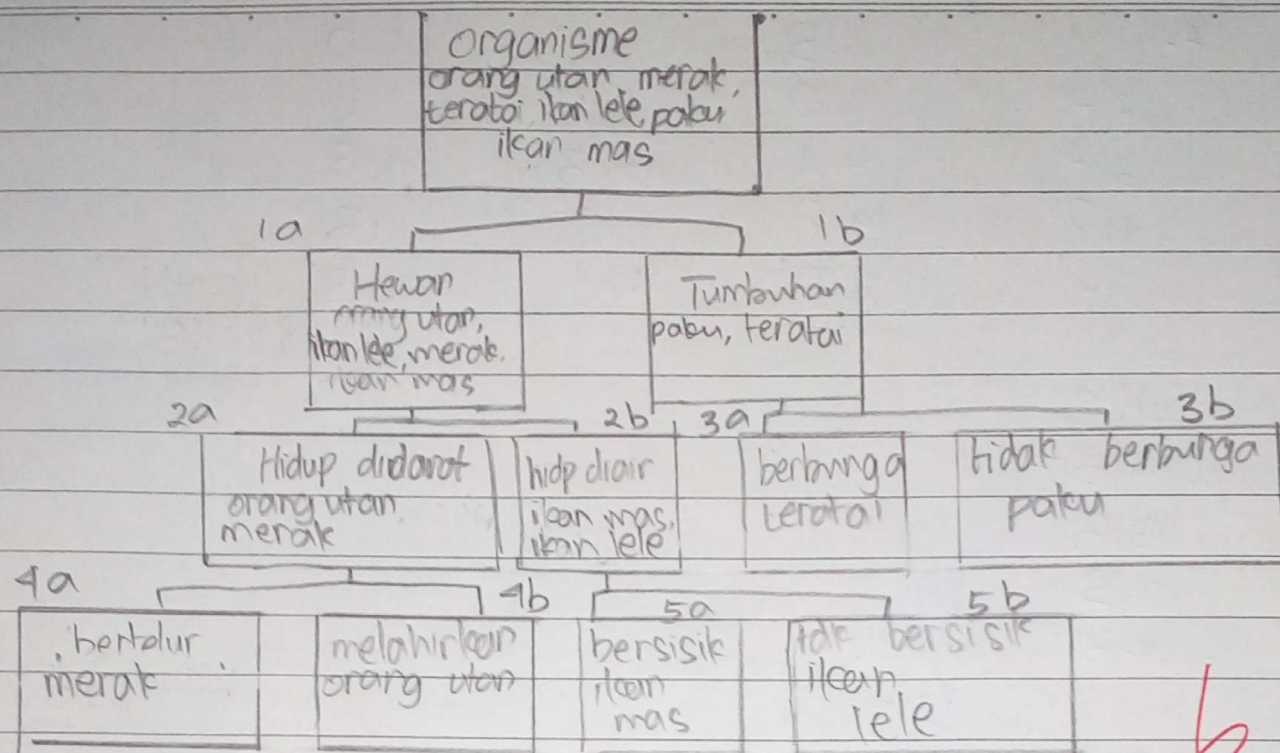 organisme
orang utan, merak,
teratai ikan lele, paku
ikan mas
1a
1b
Hewan
orang utan,
ikan lele, merak,
ikan mas
Tumbuhan
paku, teratai
2a
2b
3a
3b
Hidup didarat
orang utan
merak
hidp diair
ikan mas,
ikan lele
berbunga
teratai
tidak berbunga
paku
4a
4b
5a
5b
bertelur
merak
melahirkan
orang utan
bersisik
ikan
mas
tdk bersisik
ikan
lele